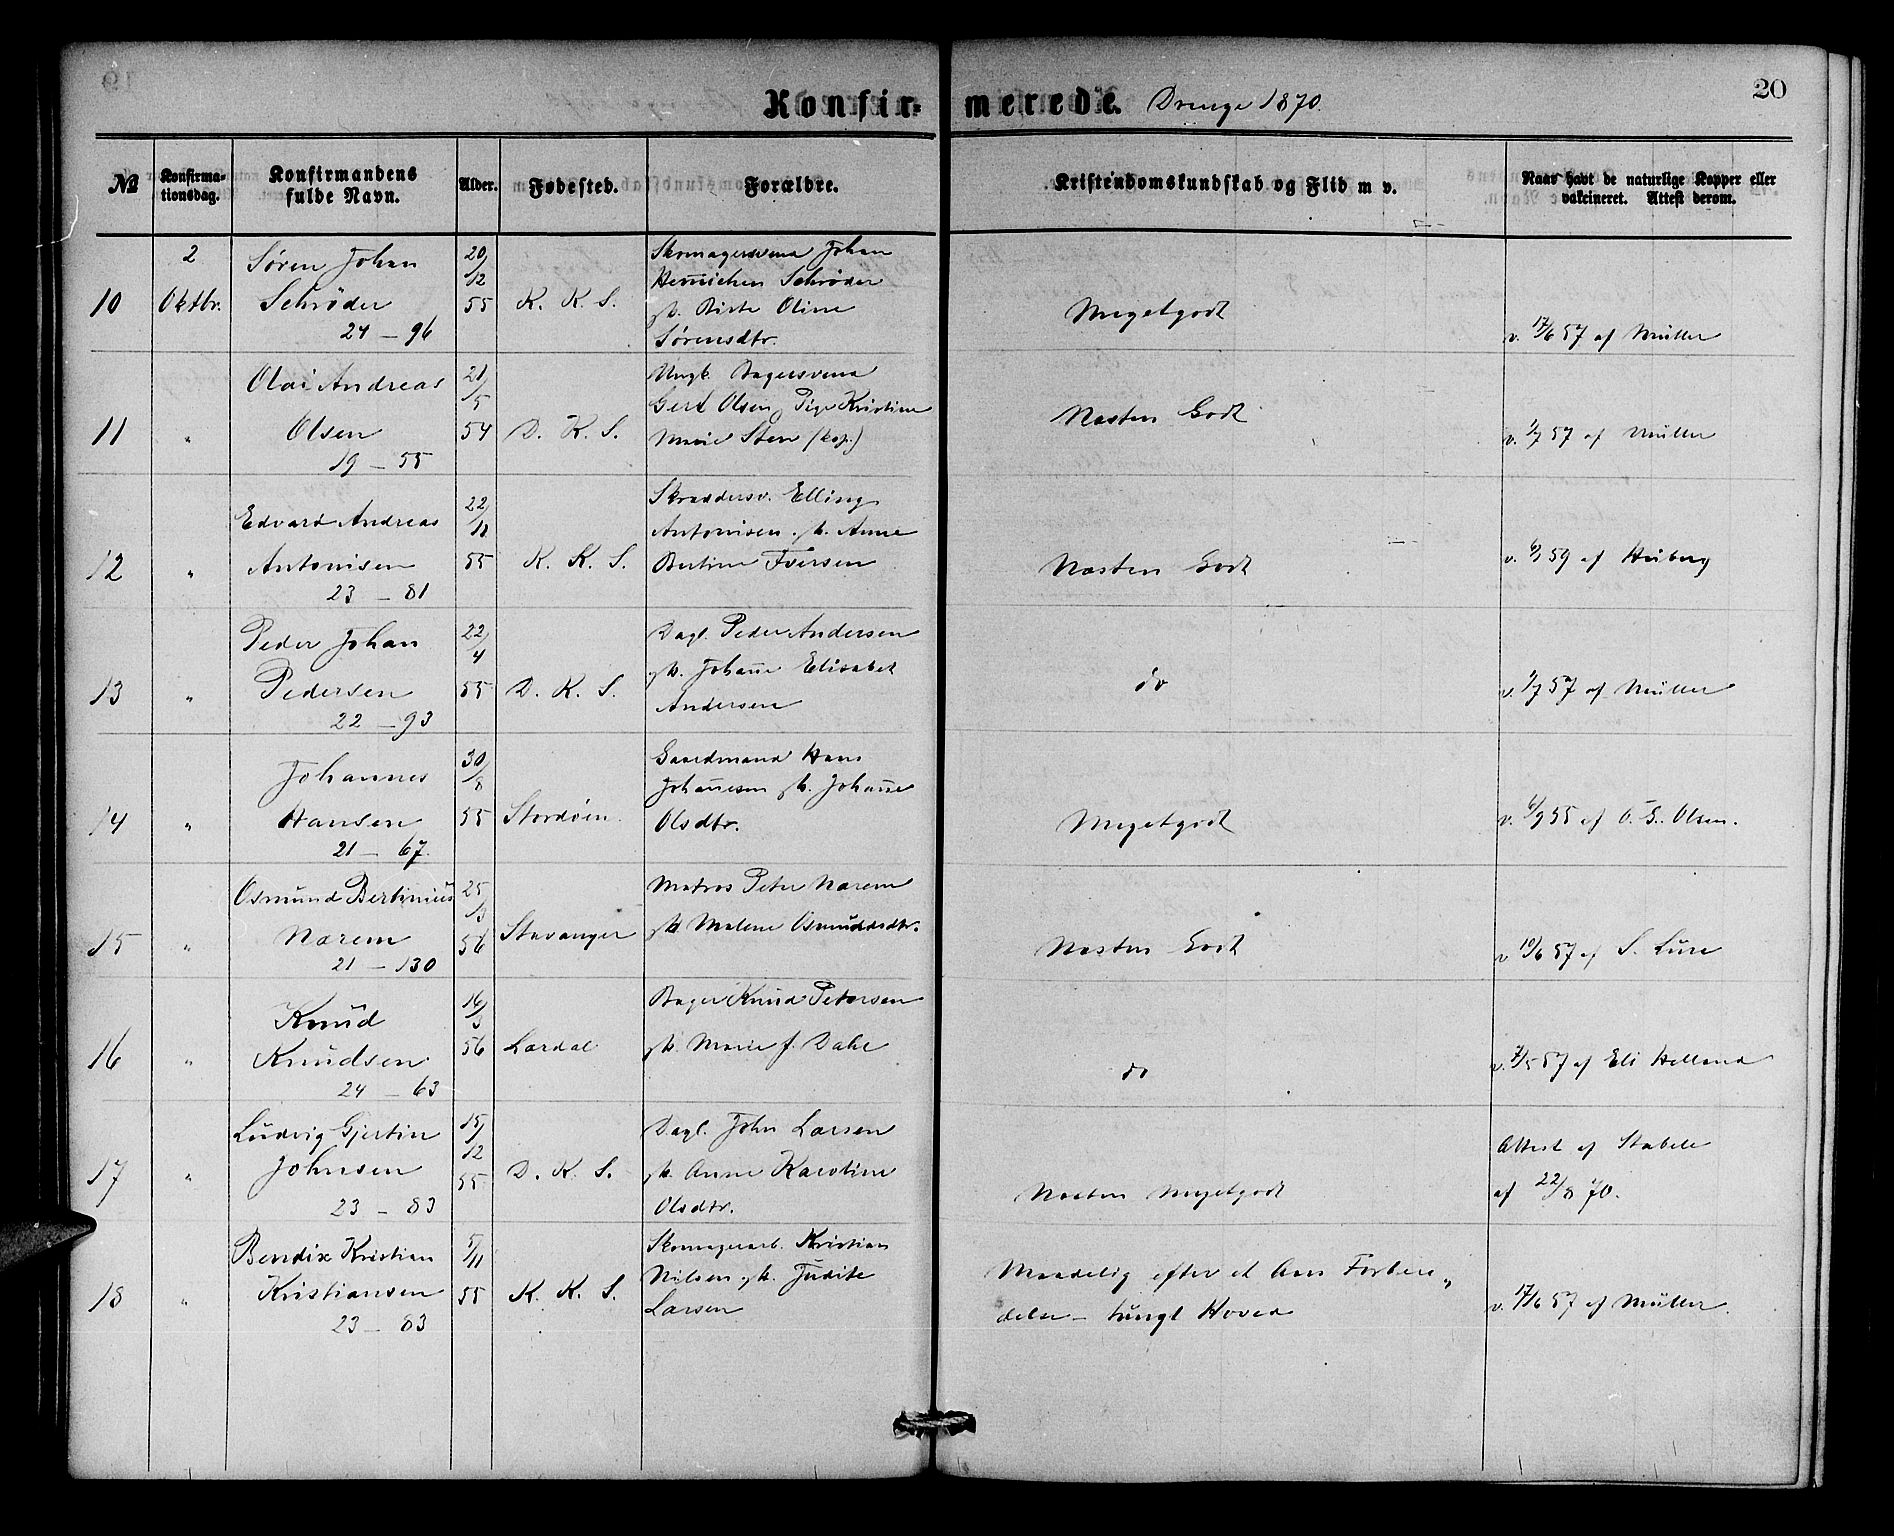 20
Konfirmerede. Drenge 1870.
№ Konfirmationsdag. Konfirmandens fulde Navn. Alder. Fødested. Forældre. Kristendomskundskab og Flid m v. Naar havt de naturlige Kopper eller vakcineret. Attest derom.
2 Søren Johan 20/12 Skomagersvend Johan
Henrichen Schrøder
10 Oktbr. Schrøder 55 K. K. S. Birte Oline Megetgodt
24 – 96 Sørensdtr. v. 17/6 57 af Müller
Olai Andreas 21/5 Ungk. Bagersvend
Gert Olsen, Pige Kristine
11 " Olsen 54 D. K. S. Marie Sten (kop.) Næsten Godt v. 2/7 57 af Müller
19 – 55
Edvard Andreas 22/11 Skræddersv. Elling
Antonisen Anne
12 " Antonisen 55 K. K. S. Bertine Iversen Næsten Godt v. 59 af Heiberg
23 – 81
Peder Johan 22/4 Dagl. Peder Andersen
Johañe Elisabet
13 " Pedersen 55 D. K. S. Andersen do v. 2/7 57 af Müller
22 – 93
Johannes 30/8 Gaardmand Hans
Johañesen Johañe
14 " Hansen 55 Stordøen Olsdtr. Megetgodt v. 6/9 55 af O. S. Olsen.
21 – 67.
Osmund Bertinius 25/3 Matros Peter Narem
15 " Narem 56 Stavanger Malene Osmundsdtr. Næsten Godt v 10/6 57 af S. Lure
21 – 130
Knud 16/3 Bager Knud Petersen
16 " Knudsen 56 Lærdal Marie f. Dahl do v. 7/5 57 af Eli Helland
24 – 63
Ludvig Gjertin 15/12 Dagl. John Larsen Attest af Stabell
17 " Johnsen 55 D. K. S. Anne Karoline Næsten Megetgodt af 22/8 70.
23 – 83 Olsdtr.
Bendix Kristian 5/11 Skomagerarb. Kristian
Nilsen Judite Maadelig efter et Aars Forbere„
18 " Kristiansen 55 K. K. S. Larsen delse – tungt Hoved v. 17/6 57 af Müller.
23 – 83